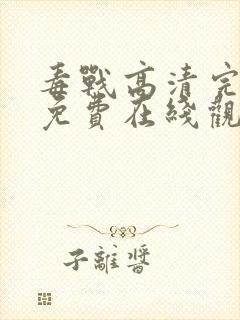 毒戰高清完
免費在綫觀
子離醬